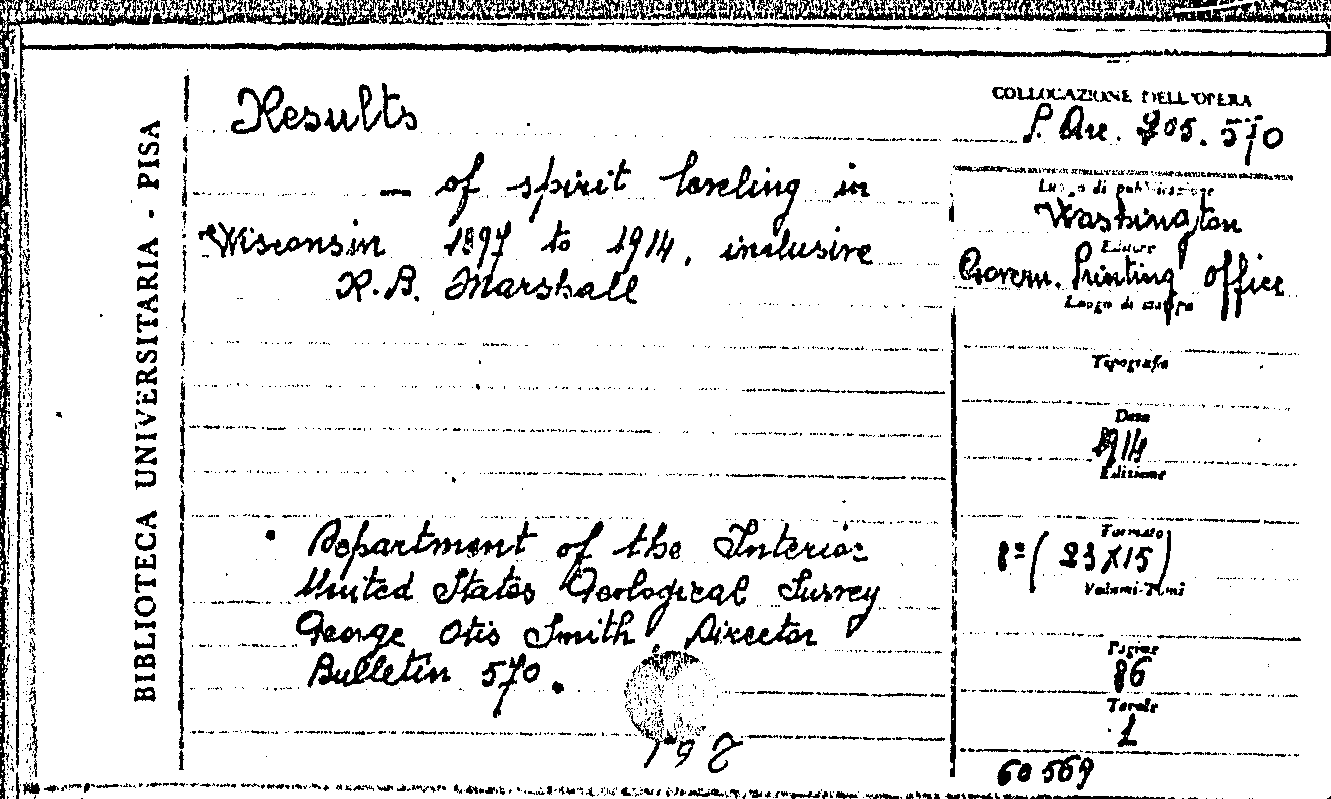 BIBLIOTECA UNIVERSITARIA - PISA
Results
— of spirit leveling in
Wisconsin 1897 to 1914, inclusive
R.B. Marshall
Department of the Interior
United States Geological Survey
George Otis Smith, Director
Bulletin 570.
COLLOCAZIONE DELL'OPERA
705. 570
Luogo di pubblicazione
Washington
Editore
Govern. Printing Office
Luogo di stampa
Tipografia
Data
1914
Edizione
Formato
8º (23X15)
Volumi-Tomi
Pagine
86
Totale
1
60569